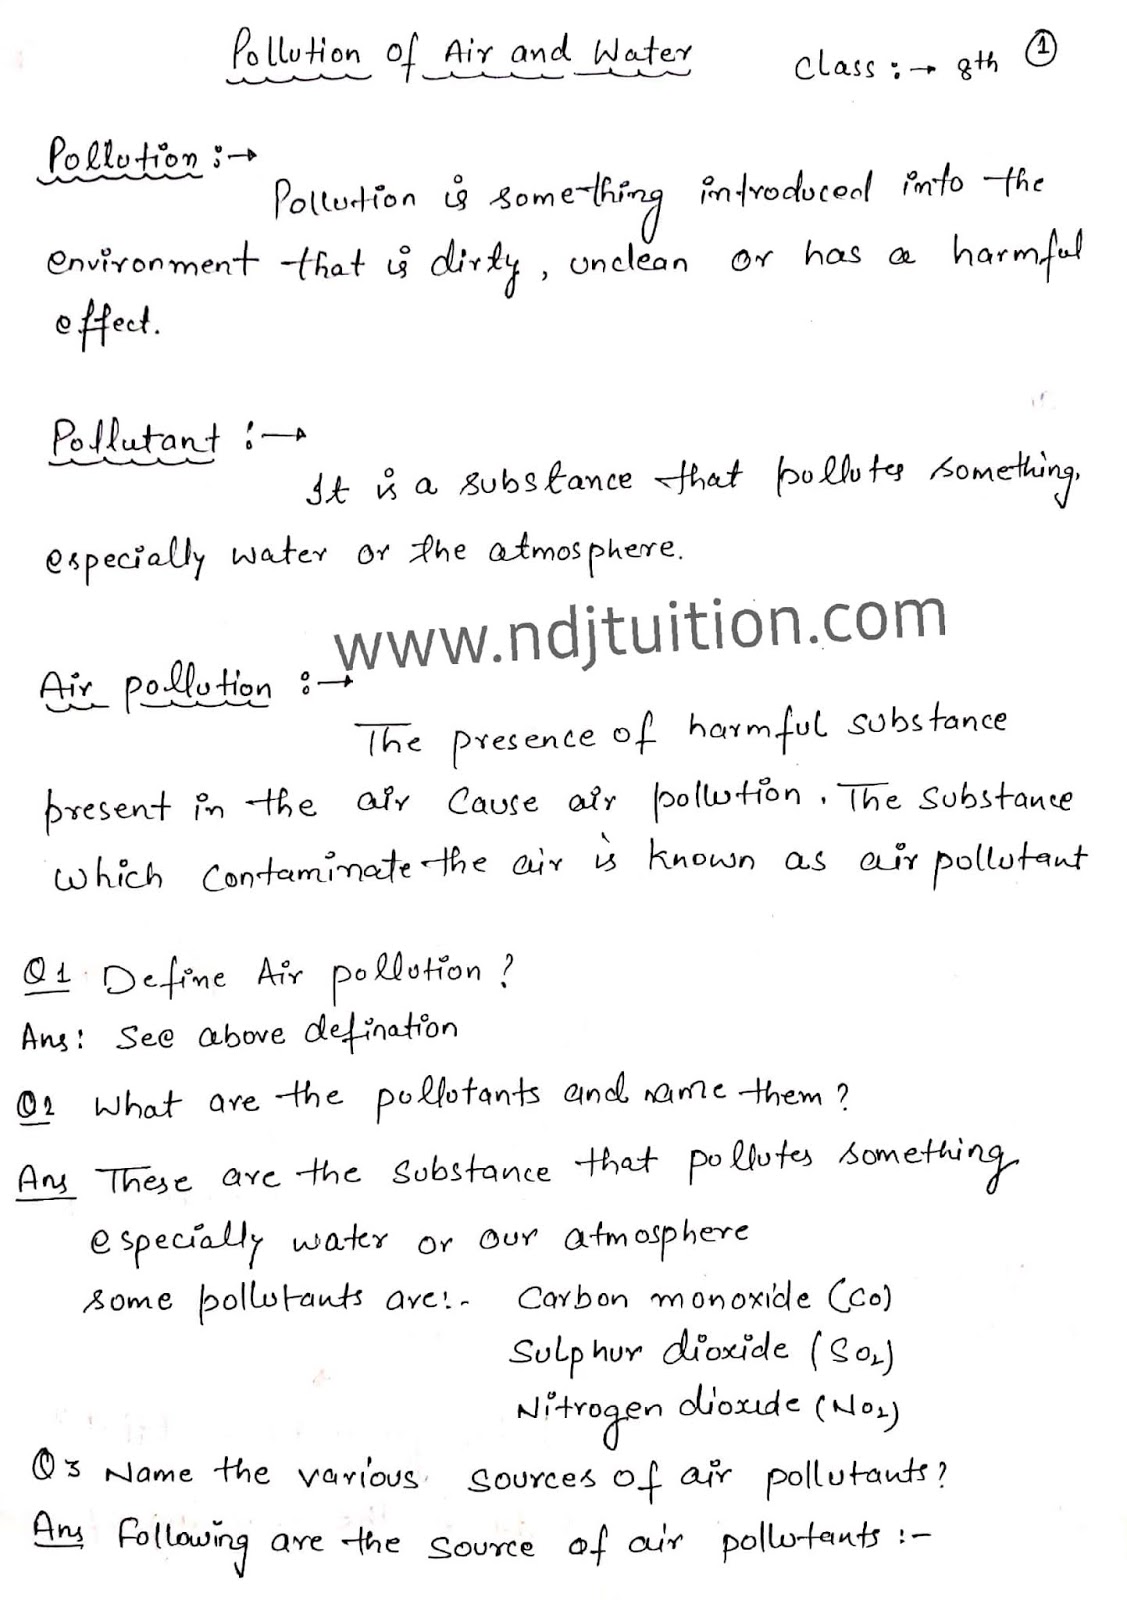 Pollution of Air and Water Class :→ 8th 1
Pollution :→
Pollution is something introduced into the
environment that is dirty, unclean or has a harmful
effect.
Pollutant :→
It is a substance that pollutes something,
especially water or the atmosphere.
www.ndjtuition.com
Air pollution :→
The presence of harmful substance
present in the air cause air pollution. The substance
which contaminate the air is known as air pollutant
Q1 Define Air pollution?
Ans: See above defination
Q2 What are the pollutants and name them?
Ans These are the substance that pollutes something
especially water or our atmosphere
some pollutants are:- Carbon monoxide (CO)
Sulphur dioxide (SO2)
Nitrogen dioxide (NO2)
Q3 Name the various sources of air pollutants?
Ans Following are the source of air pollutants :-